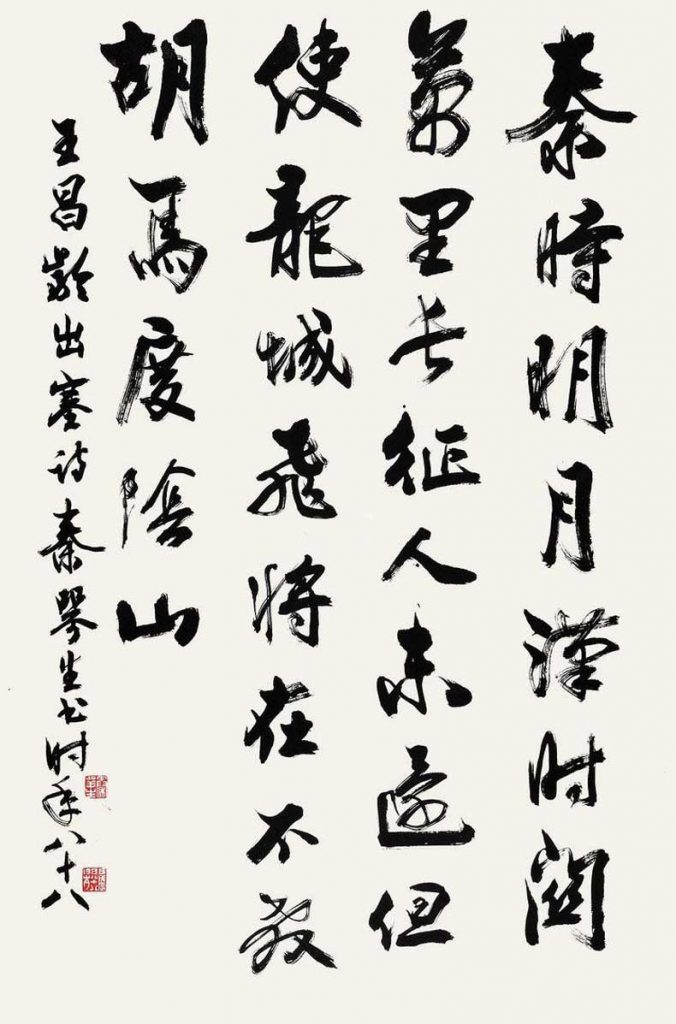 秦時明月漢时關
萬里長征人未還但
使龍城飛將在不教
胡馬度陰山
王昌齡出塞诗秦咢生书时年八十八